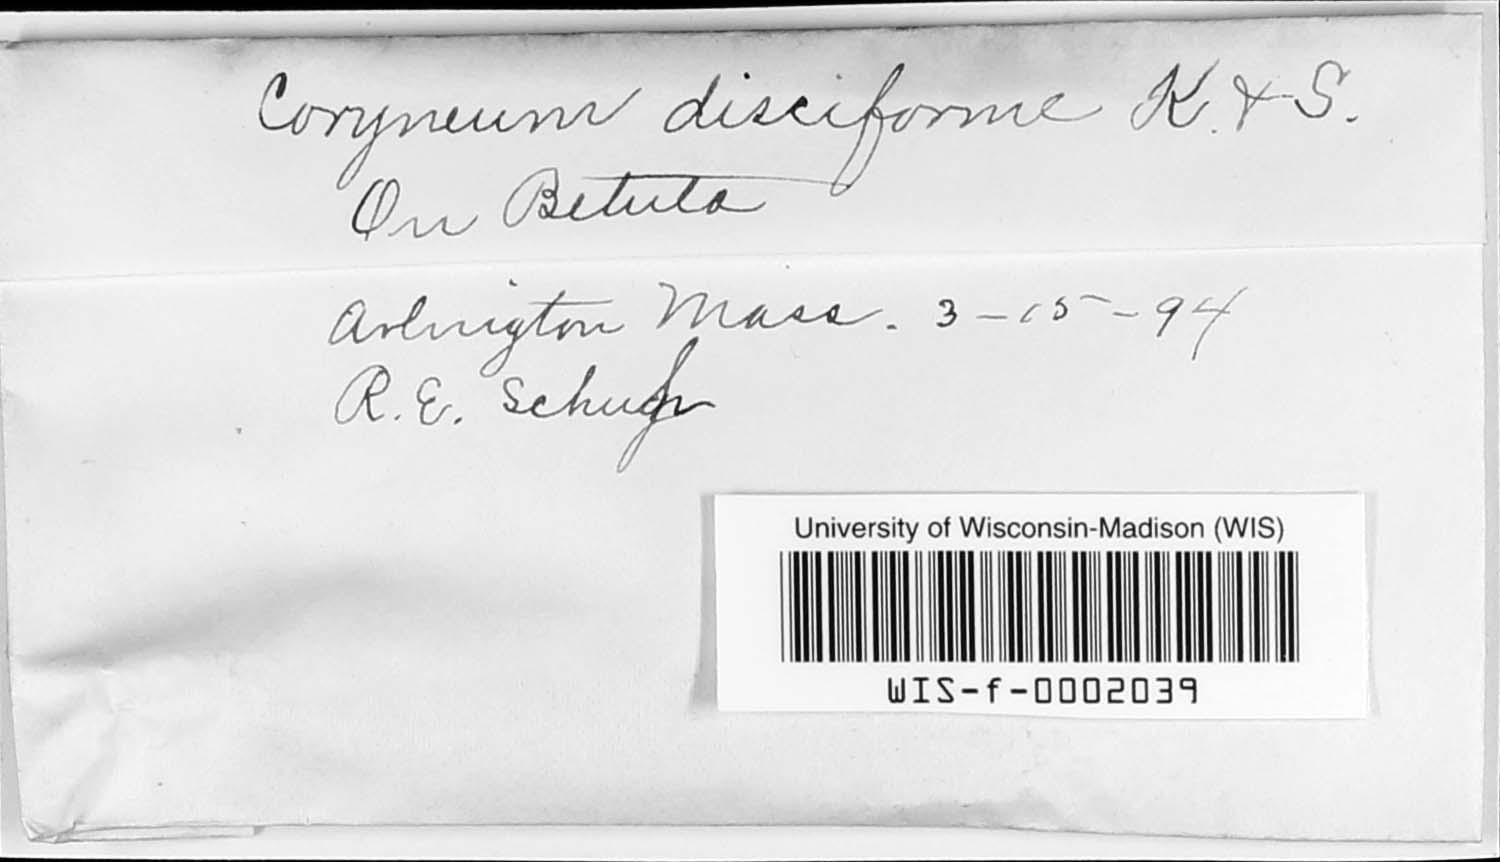 Coryneum disciforme K. & S.
On Betula
Arlington Mass. 3-15-94
R. E. Schuh
University of Wisconsin-Madison (WIS)
WIS-f-0002039